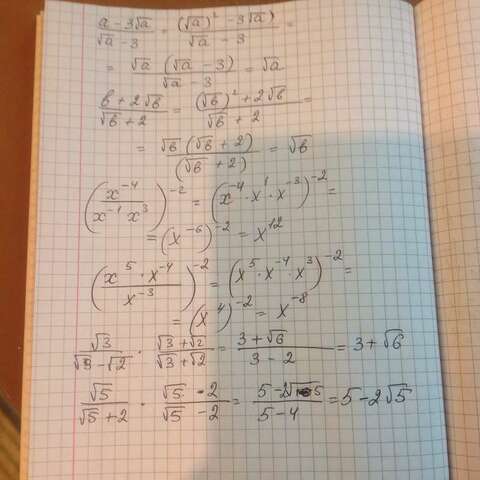 (a - 3√a)/(√a - 3) = ((√a)² - 3√a)/(√a - 3) =
= √a (√a - 3)/(√a - 3) = √a
(в + 2√в)/(√в + 2) = ((√в)² + 2√в)/(√в + 2) =
= √в (√в + 2)/(√в + 2) = √в
(x⁻⁴/(x⁻¹ x³))⁻² = (x⁻⁴ · x¹ · x⁻³)⁻² =
= (x⁻⁶)⁻² = x¹²
((x⁵ · x⁻⁴)/x⁻³)⁻² = (x⁵ · x⁻⁴ · x³)⁻² =
= (x⁴)⁻² = x⁻⁸
√3/(√3 - √2) · (√3 + √2)/(√3 + √2) = (3 + √6)/(3 - 2) = 3 + √6
√5/(√5 + 2) · (√5 - 2)/(√5 - 2) = (5 - 2√5)/(5 - 4) = 5 - 2√5